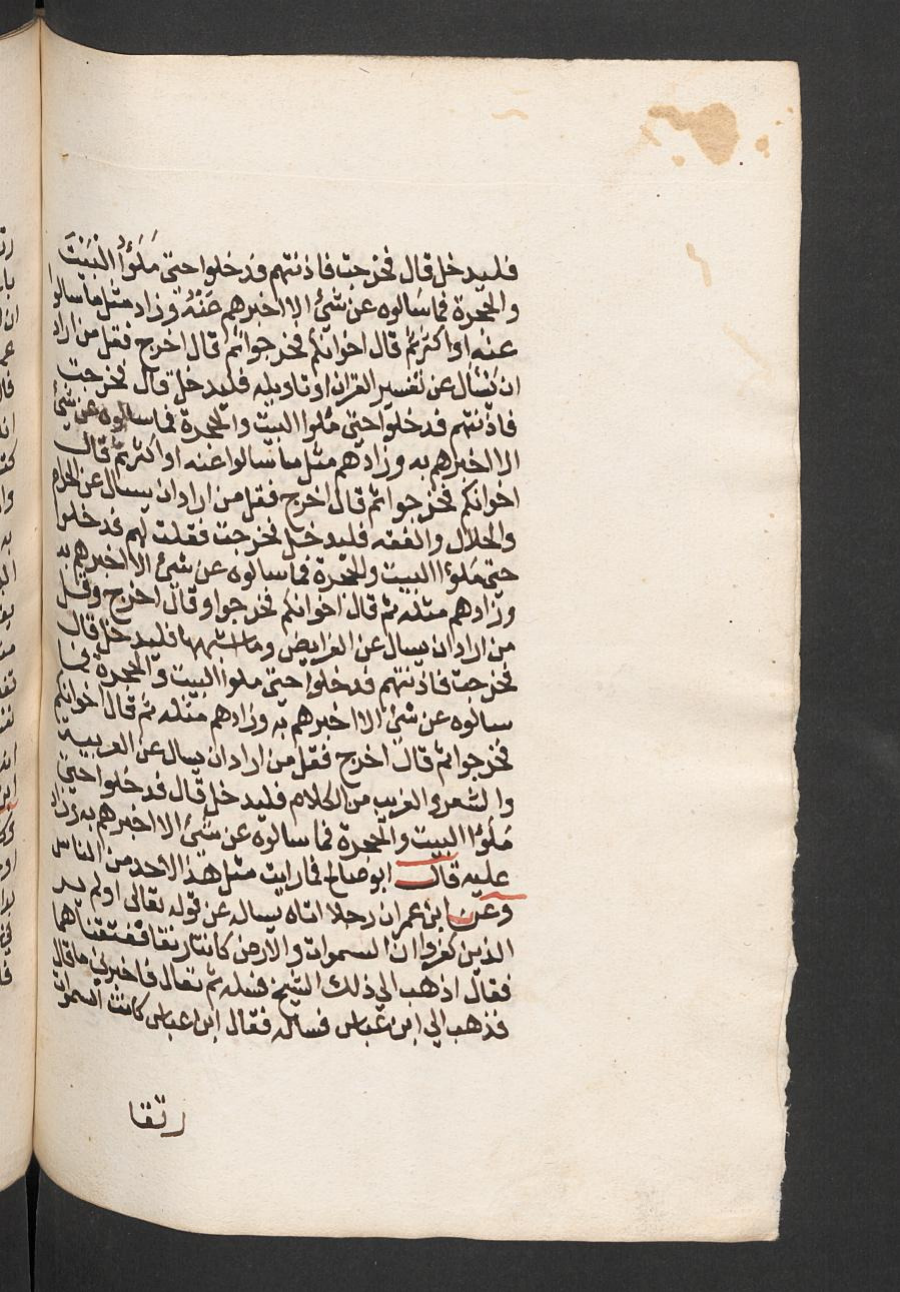 فليدخل قال فخرجت فاذنتهم فدخلوا حتى مَلَؤُا البَيْتَ
والحجرة فما سَالوه عن شئ الا اخبرهم عَنْهُ وزاد مثل ما سالوا
عنه او اكثر ثم قال اخوانكم فخرجوا ثم قال اخرج فقل من اراد
ان يَسْأل عن تفسير القران او تاويله فليدخل قال فخرجت
فاذنتهم فدخلوا حتى ملوا البيت والحجرة فما سالوه عن شئ
الا اخبرهم به وزادهم مثل ما سالوا عنه او اكثر ثم قال
اخوانكم فخرجوا ثم قال اخرج فقل من اراد ان يسال عن الحرام
والحلال والفقه فليدخل فخرجت فقلت لهم فدخلوا
حتى مَلوءا البيت والحجرة فما سالوه عن شئ الا اخبرهم به
وزادهم مثله ثم قال اخوانكم فخرجوا وقال اخرج وقل
من اراد ان يسال عن الفرايض وما اشبهها فليدخل قال
فخرجت فاذنتهم فدخلوا حتى ملوا البيت والحجرة فما
سالوه عن شئ الا اخبرهم به وزادهم مثله ثم قال اخوانكم
فخرجوا ثم قال اخرج فقل من اراد ان يسال عن العربية
والشعر والغريب من الكلام فليدخل قال فدخلوا حتى
مَلوءا البيت والحجرة فما سالوه عن شئ الا اخبرهم به وزاد
عليه قال ابو صالح فما رايت مثل هذا لاحد من الناس
وعن ابن عمر ان رجلا اتاه يساله عن قوله تعالى اولم ير
الذين كفروا ان السموات والارض كانتا رتقا ففتقناهما
فقال اذهب الي ذلك الشيخ فسله ثم تعال فاخبرني ما قال
فذهب الي ابن عباس فساله فقال ابن عباس كانت السموات
رتقا